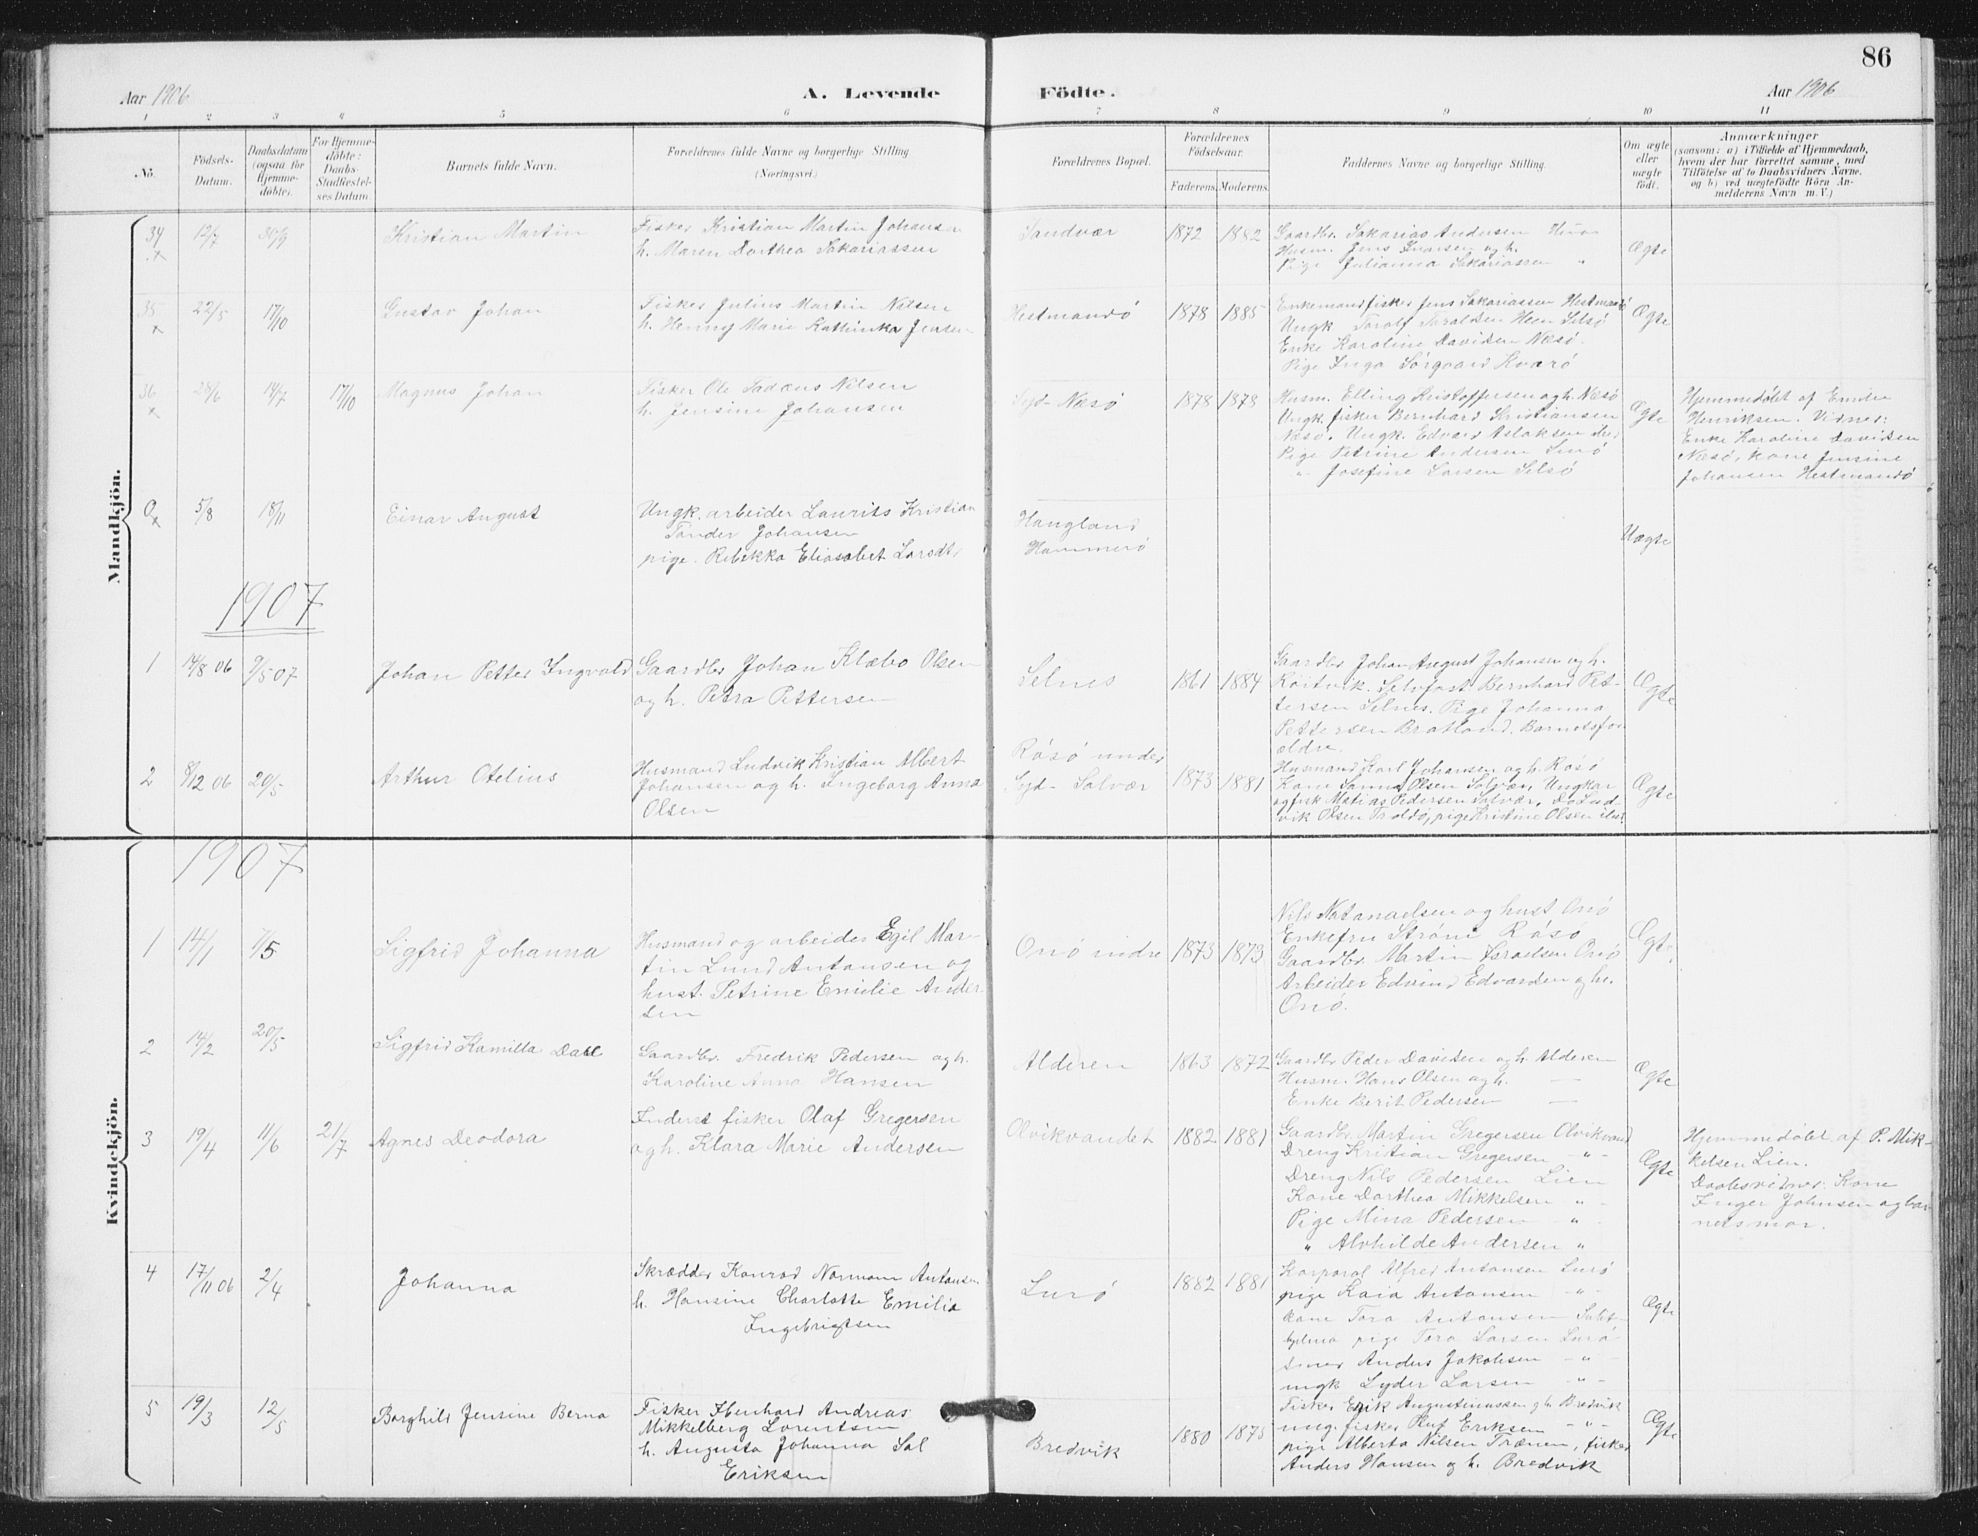 86
Aar 1906
A. Levende
Födte.
Aar 1906
1 2 3 4 5 6 7 8 9 10 11
No.
Födsels-
Datum.
Daabsdatum
(ogsaa for
Hjemme-
döbte).
For Hjemme-
döbte:
Daabs-
Stadfæstel-
ses Datum.
Barnets fulde Navn.
Forældrenes fulde Navne og borgerlige Stilling
(Næringsvei.)
Forældrenes Bopæl.
Forældrenes
Födselsaar.
Faderens. Moderens.
Faddernes Navne og borgerlige Stilling.
Om ægte
eller
uægte
födt.
Anmærkninger
(saasom: a) i Tilfælde af Hjemmedaab,
hvem der har forrettet samme, med
Tilföielse af to Daabsvidners Navne.
og b) ved uægtefödte Börn An-
melderens Navn m. V.)
Mandkjön.
34 12/7 30/9
Kristian Martin
Fisker Kristian Martin Johansen
h. Maren Dorthea Sakariassen
Sandvær
1872 1882
Gaardbr. Sakarias Andersen
Husm. Jens Ivarsen og h.
Pige Julianna Sakariassen "
Ægte
35 22/5 17/10
Gustav Johan
Fisker Julius Martin Nilsen
h. Henny Marie Kathinka Jensen
Hestmandö
1878 1885
Enkemand fisker Jens Sakariassen Hestmandö
Ungk Torolf Toraldsen Heen Selsö
Enke Karoline Davidsen Næsö.
Pige Inga Sörgaard Kvarö
Ægte
36 28/6 14/7 17/10
Magnus Johan
Fisker Ole Tadæus Nilsen
h. Jensine Johansen
Syd-Næsö
1878 1878
Husm. Elling Kristoffersen og h. Næsö
Ungk. fisker Bernhard Kristiansen
Næsö. Ungk. Edvard Aslaksen
Pige Petrine Andersen Lurö
" Josefine Larsen Selsö
Ægte
Hjemmedøbt af Emilie
Henriksen. Vidner:
Enke Karoline Davidsen
Næsö, kone Jensine
Johansen Hestmandö
0 5/8 18/11
Einar August
Ungk. arbeider Laurits Kristian
Tander Johansen
pige. Rebekka Eliasabet Lorodt
Haugland
Hammerö
Uægte
1907
1 14/8 06 9/5 07
Johan Petter Ingvald
Gaardbr Johan Klæbo Olsen
og h. Petra Pettersen
Selnes
1861 1884
Gaardbr Johan August Johansen og h.
Kvitvik. Selvfost Bernhard Pet-
tersen Selnes. Pige Johanna
Pettersen Bratland. Barnetsfor
ældre.
Ægte
2 8/12 06 20/5
Arthur Otelius
Husmand Ludvik Kristian Albert
Johansen og h. Ingeborg Anna
Olsen
Råsö under
Syd-Solvær
1873 1881
Husmand Karl Johansen og h. Råsö
Kone Sanna Olsen Solvær, Ungkar
og fisk Matias Pedersen Solvær, Do Lud-
vik Olsen Traldö, pige Kristine Olsen
Ægte
Kvindekjön.
1907
1 14/1 7/5
Sigfrid Johanna
Husmand og arbeider Egil Mar-
tin Lund Antonsen og
hust. Petrine Emilie Ander-
sen
Onö indre
1873 1873
Nils Natanaelsen og hust Onö
Enkefru Ströni Råsö
Gaardbr. Martin Israelsen Onö
Arbeider Edvind Edvardsen og h.
Onö.
Ægte
2 14/2 20/5
Sigfrid Kamilla Dall
Gaardbr. Fredrik Pedersen og h.
Karoline Anna Hansen
Alderen
1863 1872
Gaardbr Peder Davidsen og h. Alderen
Husm. Hans Olsen og h. —
Enke Berit Pedersen —
Ægte
3 19/4 11/6 21/7
Agnes Deodora
Inderst fisker Olaf Gregersen
og h. Klara Marie Andersen
Olvikvandet
1882 1881
Gaardbr. Martin Gregersen Olvikvand
Dreng Kristian Gregersen - " -
Dreng Nils Pedersen Lien
Kone Dorthea Mikkelsen "
Pige Mina Pedersen - " -
" Alvhilde Andersen "
Ægte
Hjemmedøbt af P. Mik-
kelsen Lien.
Daabsvidner: Kone
Inger Johnsen og bar
netsmor.
4 17/11 06 2/4
Johanna
Skrædder Konrad Normann Antonsen
h. Hansine Charlotte Emilie
Ingebrigtsen
Lurö
1882 1881
Korporal Alfred Antonsen Lurö
pige Kaia Antonsen - " -
Kone Tora Antonsen
pige Tora Larsen Lurö
Anders Jakobsen - " -
ungk Lyder Larsen - " -
Ægte
5 19/3 12/5
Borghild Jensine Berna
Fisker Ebenhard Andreas
Mikkelberg Lorentsen
h. Augusta Johanna Sal
Eriksen
Bredvik
1880 1875
Fisker Erik Augustinussen og h. Bredvik
ung. fisker Oluf Eriksen - " -
pige Alberta Nilsen Trænen, fisker
Anders Hansen og h. Bredvik
Ægte